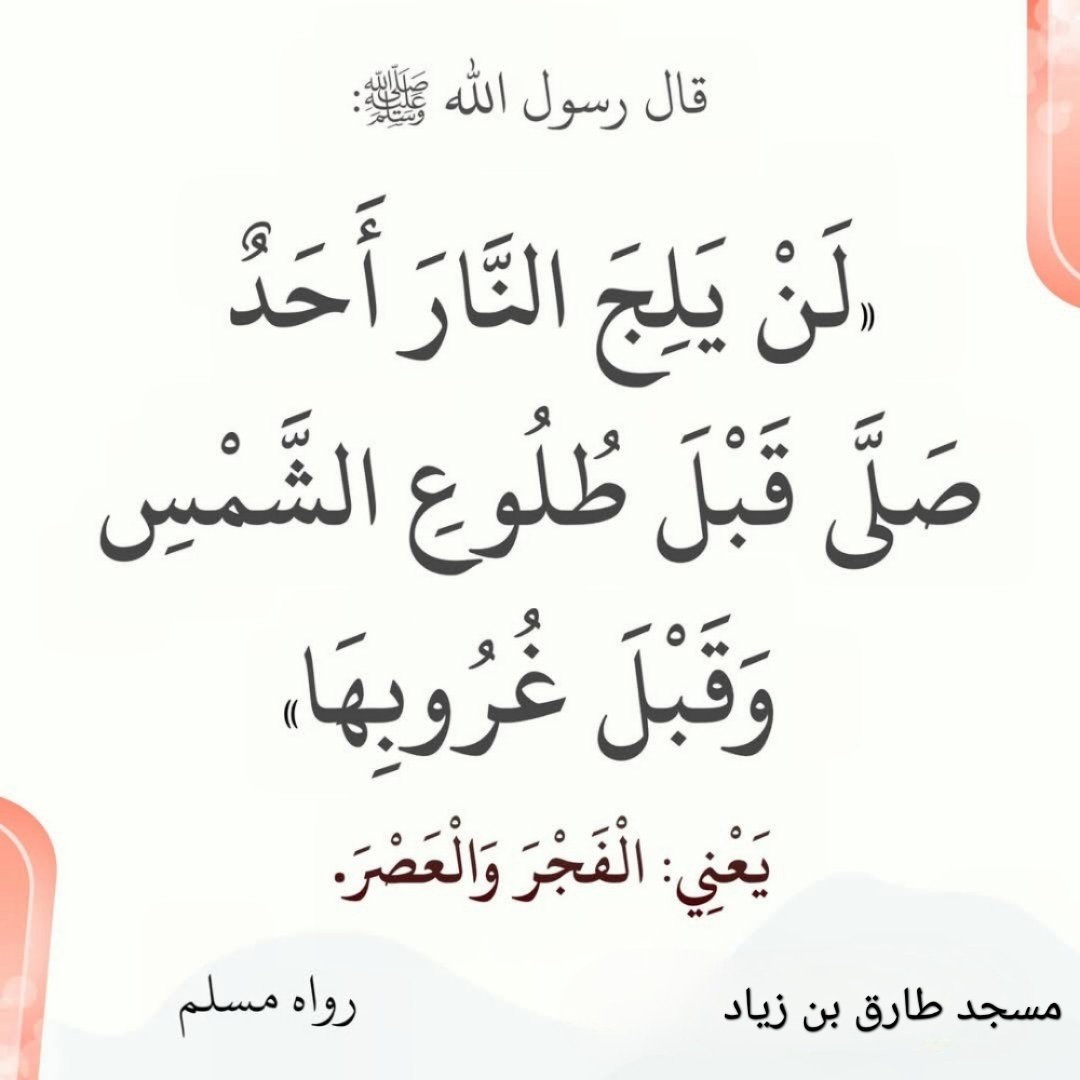 قال رسول الله ﷺ:
«لَنْ يَلِجَ النَّارَ أَحَدٌ
صَلَّى قَبْلَ طُلُوعِ الشَّمْسِ
وَقَبْلَ غُرُوبِهَا»
يَعْنِي: الْفَجْرَ وَالْعَصْرَ.
مسجد طارق بن زياد
رواه مسلم